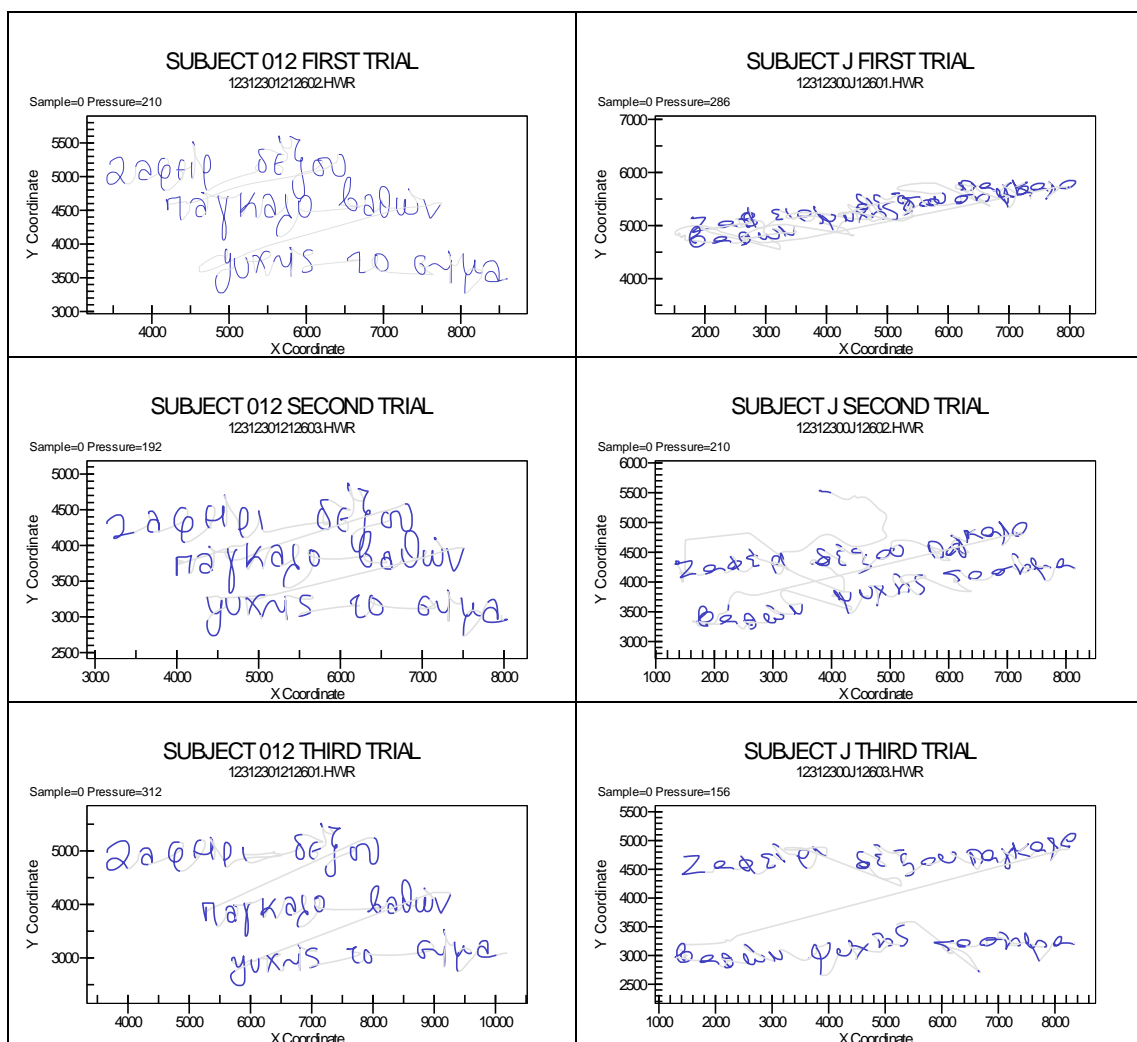 SUBJECT 012 FIRST TRIAL
12312301212602.HWR
Sample=0 Pressure=210
Y Coordinate
5500
5000
4500
4000
3500
3000
ζαφείρ δέξου
πάγκαλο βαθών
ψυχής το σήμα
4000 5000 6000 7000 8000
X Coordinate
SUBJECT J FIRST TRIAL
12312300J12601.HWR
Sample=0 Pressure=286
Y Coordinate
7000
6000
5000
4000
δέξου πάγκαλο
βαθών ψυχής το σήμα
2000 3000 4000 5000 6000 7000 8000
X Coordinate
SUBJECT 012 SECOND TRIAL
12312301212603.HWR
Sample=0 Pressure=192
Y Coordinate
5000
4500
4000
3500
3000
2500
ζαφείρι δέξου
πάγκαλο βαθών
ψυχής το σήμα
3000 4000 5000 6000 7000 8000
X Coordinate
SUBJECT J SECOND TRIAL
12312300J12602.HWR
Sample=0 Pressure=210
Y Coordinate
6000
5500
5000
4500
4000
3500
3000
δέξου πάγκαλο
βαθών ψυχής το σήμα
1000 2000 3000 4000 5000 6000 7000 8000
X Coordinate
SUBJECT 012 THIRD TRIAL
12312301212601.HWR
Sample=0 Pressure=312
Y Coordinate
5000
4000
3000
ζαφείρι δέξου
πάγκαλο βαθών
ψυχής το σήμα
4000 5000 6000 7000 8000 9000 10000
X Coordinate
SUBJECT J THIRD TRIAL
12312300J12603.HWR
Sample=0 Pressure=156
Y Coordinate
5500
5000
4500
4000
3500
3000
2500
Ζαφείρι δέξου πάγκαλο
βαθών ψυχής το σήμα
1000 2000 3000 4000 5000 6000 7000 8000
X Coordinate